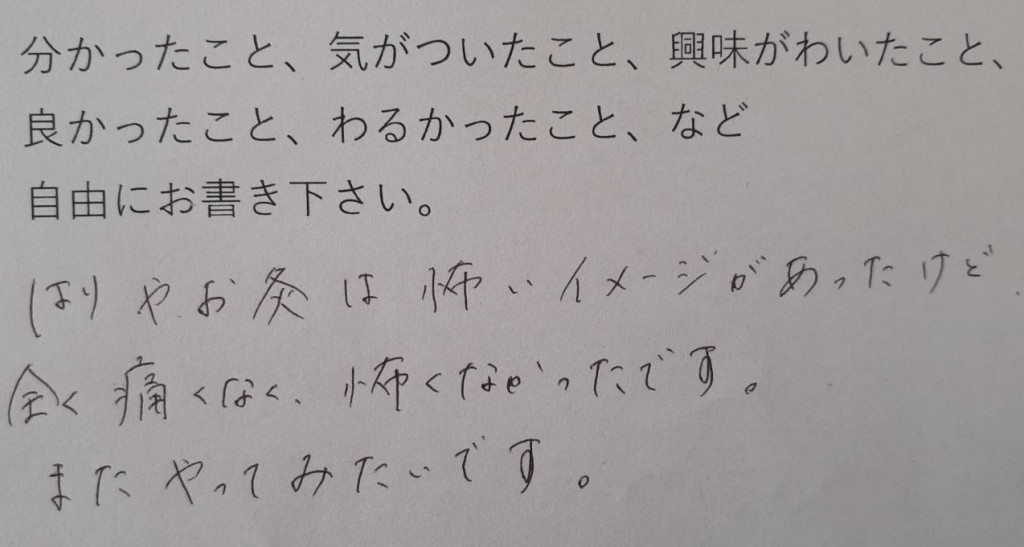 分かったこと、気がついたこと、興味がわいたこと、
良かったこと、わるかったこと、など
自由にお書き下さい。
はりやお灸は怖いイメージがあったけど、
全く痛くなく、怖くなかったです。
またやってみたいです。